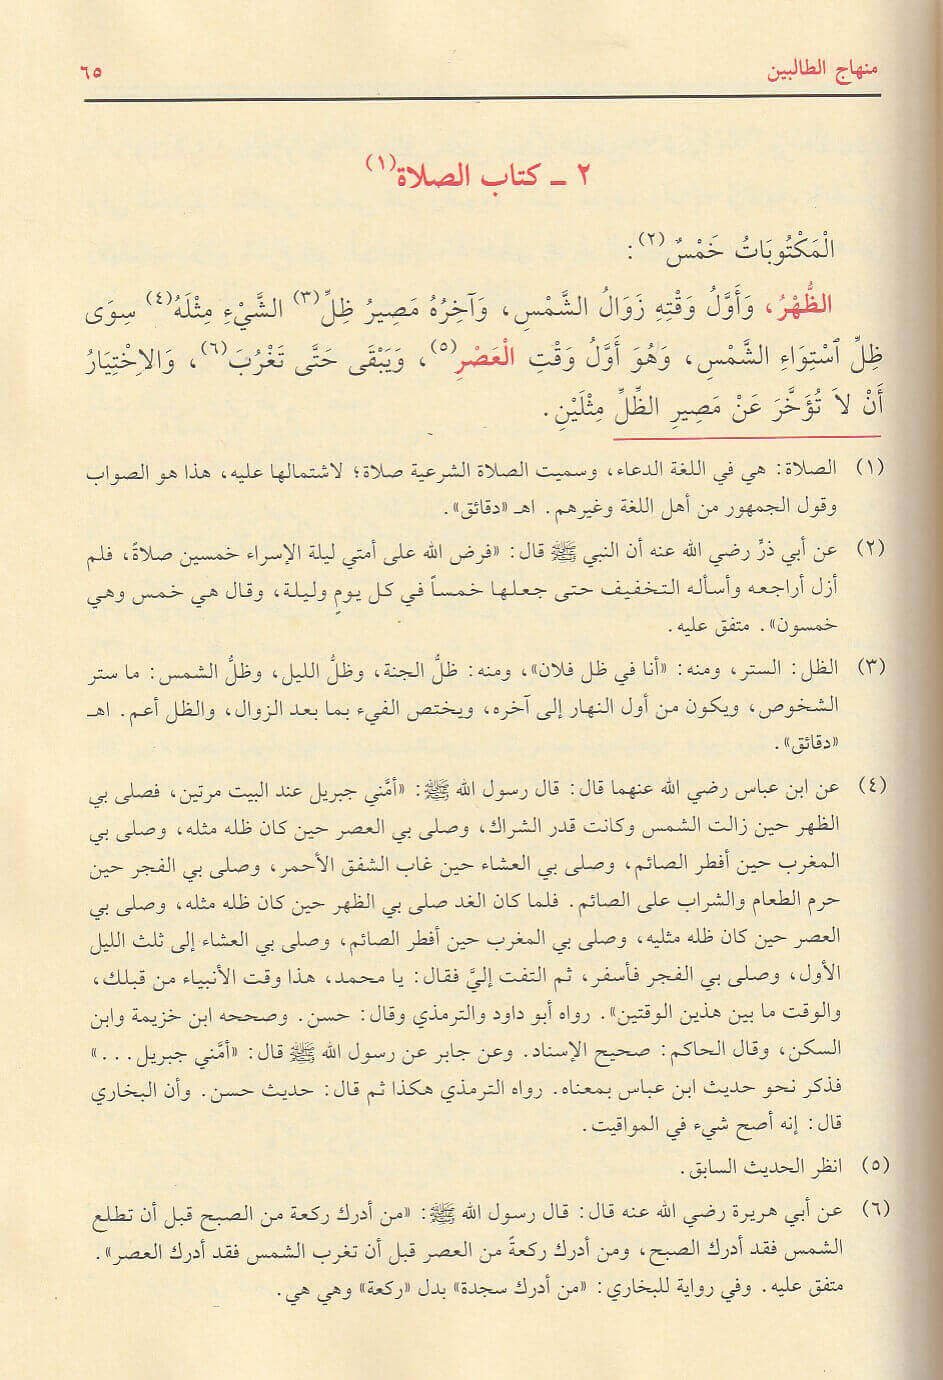 منهاج الطالبين ٦٥
٢ ـ كتاب الصلاة(١)
الْمَكْتُوبَاتُ خَمْسٌ(٢):
الظُّهْرُ، وَأَوَّلُ وَقْتِهِ زَوَالُ الشَّمْسِ، وَآخِرُهُ مَصِيرُ ظِلِّ(٣) الشَّيْءِ مِثْلَهُ(٤) سِوَى
ظِلِّ ٱسْتِوَاءِ الشَّمْسِ، وَهُوَ أَوَّلُ وَقْتِ الْعَصْرِ(٥)، وَيَبْقَى حَتَّى تَغْرُبَ(٦)، وَالاِخْتِيَارُ
أَنْ لاَ تُؤَخَّرَ عَنْ مَصِيرِ الظِّلِّ مِثْلَيْنِ.
(١) الصلاة: هي في اللغة الدعاء، وسميت الصلاة الشرعية صلاة؛ لاشتمالها عليه، هذا هو الصواب
وقول الجمهور من أهل اللغة وغيرهم. اهـ «دقائق».
(٢) عن أبي ذرٍّ رضي الله عنه أن النبي ﷺ قال: «فرض الله على أمتي ليلة الإسراء خمسين صلاةً، فلم
أزل أراجعه وأسأله التخفيف حتى جعلها خمساً في كل يومٍ وليلة، وقال هي خمس وهي
خمسون». متفق عليه.
(٣) الظل: الستر، ومنه: «أنا في ظل فلان»، ومنه: ظلُّ الجنة، وظلُّ الليل، وظلُّ الشمس: ما ستر
الشخوص، ويكون من أول النهار إلى آخره، ويختص الفيء بما بعد الزوال، والظل أعم. اهـ
«دقائق».
(٤) عن ابن عباس رضي الله عنهما قال: قال رسول الله ﷺ: «أمَّني جبريل عند البيت مرتين، فصلى بي
الظهر حين زالت الشمس وكانت قدر الشراك، وصلى بي العصر حين كان ظله مثله، وصلى بي
المغرب حين أفطر الصائم، وصلى بي العشاء حين غاب الشفق الأحمر، وصلى بي الفجر حين
حرم الطعام والشراب على الصائم. فلما كان الغد صلى بي الظهر حين كان ظله مثله، وصلى بي
العصر حين كان ظله مثليه، وصلى بي المغرب حين أفطر الصائم، وصلى بي العشاء إلى ثلث الليل
الأول، وصلى بي الفجر فأسفر، ثم التفت إليَّ فقال: يا محمد، هذا وقت الأنبياء من قبلك،
والوقت ما بين هذين الوقتين». رواه أبو داود والترمذي وقال: حسن. وصححه ابن خزيمة وابن
السكن، وقال الحاكم: صحيح الإسناد. وعن جابر عن رسول الله ﷺ قال: «أمَّني جبريل...»
فذكر نحو حديث ابن عباس بمعناه. رواه الترمذي هكذا ثم قال: حديث حسن. وأن البخاري
قال: إنه أصح شيء في المواقيت.
(٥) انظر الحديث السابق.
(٦) عن أبي هريرة رضي الله عنه قال: قال رسول الله ﷺ: «من أدرك ركعة من الصبح قبل أن تطلع
الشمس فقد أدرك الصبح، ومن أدرك ركعةً من العصر قبل أن تغرب الشمس فقد أدرك العصر».
متفق عليه. وفي رواية للبخاري: «من أدرك سجدة» بدل «ركعة» وهي هي.